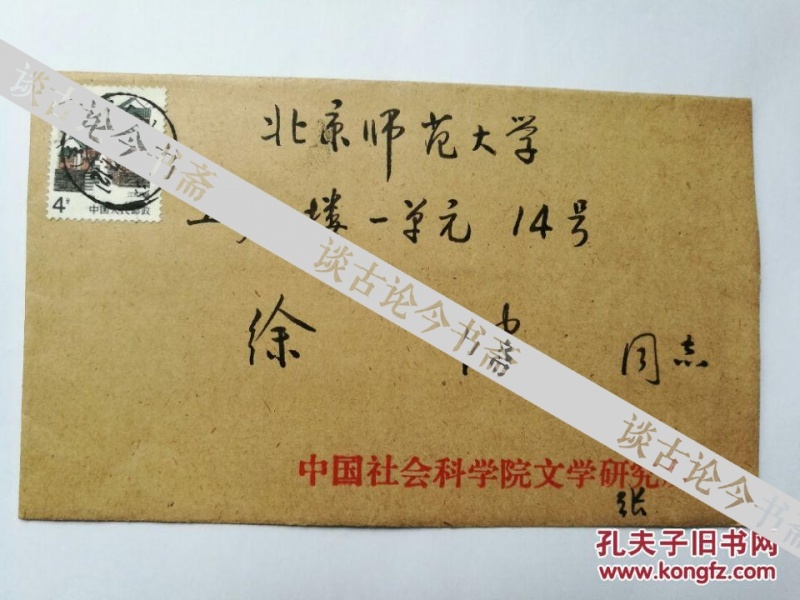 北京师范大学
楼一单元 14号
徐 同志
中国社会科学院文学研究
张
4分
中国人民邮政
谈古论今书斋
谈古论今书斋
谈古论今书斋
孔夫子旧书网
www.kongfz.com